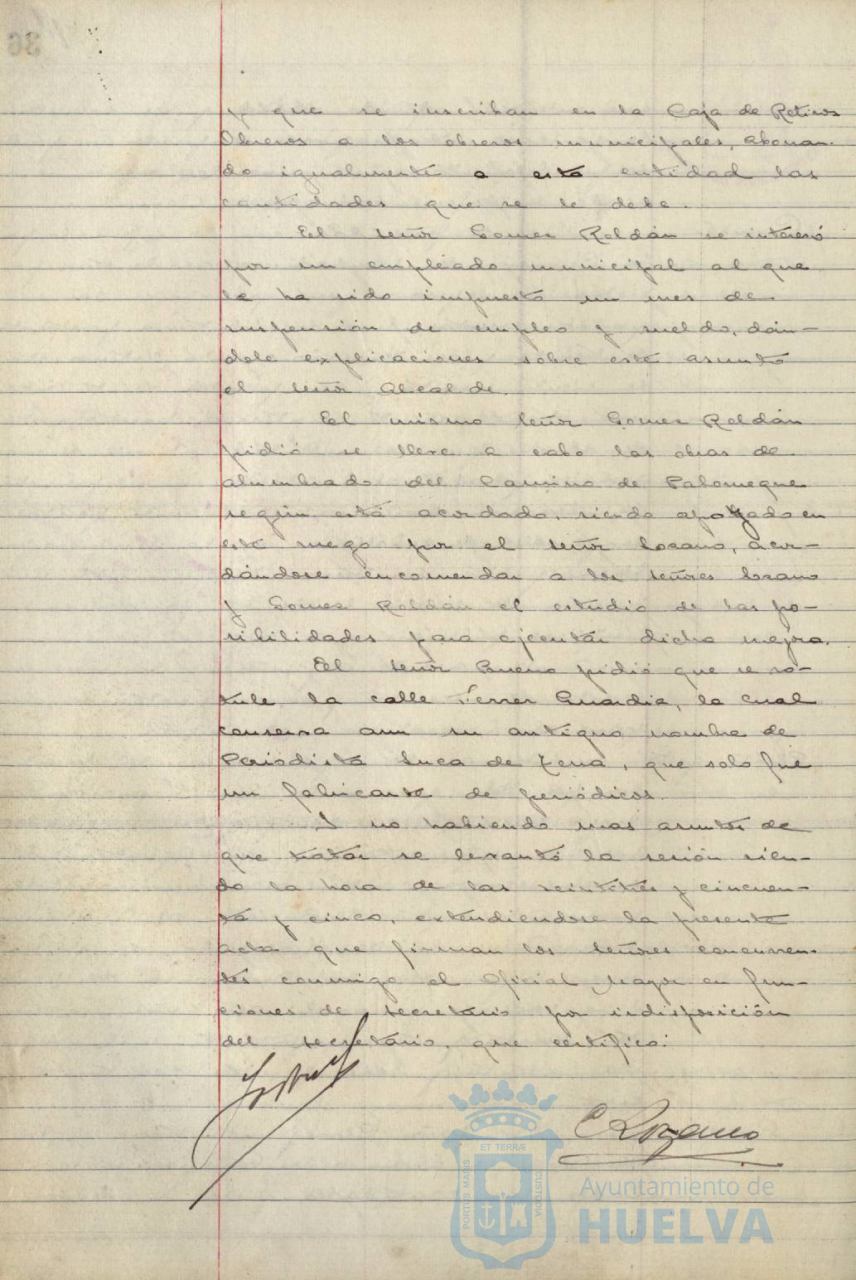 36
y que se inscriban en la Caja de Retiros
Obreros a los obreros municipales, abonan-
do igualmente a esta entidad las
cantidades que se le debe.
El señor Gomez Roldán se interesó
por un empleado municipal al que
le ha sido impuesto un mes de
suspensión de empleo y sueldo, dán-
dole explicaciones sobre este asunto
el señor Alcalde.
El mismo señor Gomez Roldán
pidió se lleve a cabo las obras de
alumbrado del Camino de Palomeque
según está acordado, siendo apoyado en
este ruego por el señor Lozano, acor-
dándose encomendar a los señores Lozano
y Gomez Roldán el estudio de las po-
sibilidades para ejecutar dicha mejora.
El señor Bueno pidió que se ro-
tule la calle Ferrer Guardia, la cual
conserva aun su antiguo nombre de
Periodista Luca de Tena, que solo fué
un fabricante de periódicos.
Y no habiendo mas asuntos de
que tratar se levantó la sesión sien-
do la hora de las veintitres y cincuen-
ta y cinco, extendiendose la presente
acta que firman los señores concurren-
tes conmigo el Oficial Mayor en fun-
ciones de secretario por indisposición
del secretario, que certifico:
C Lozano
ET TERRÆ
PORTUS MARIS
CUSTODIA
Ayuntamiento de
HUELVA